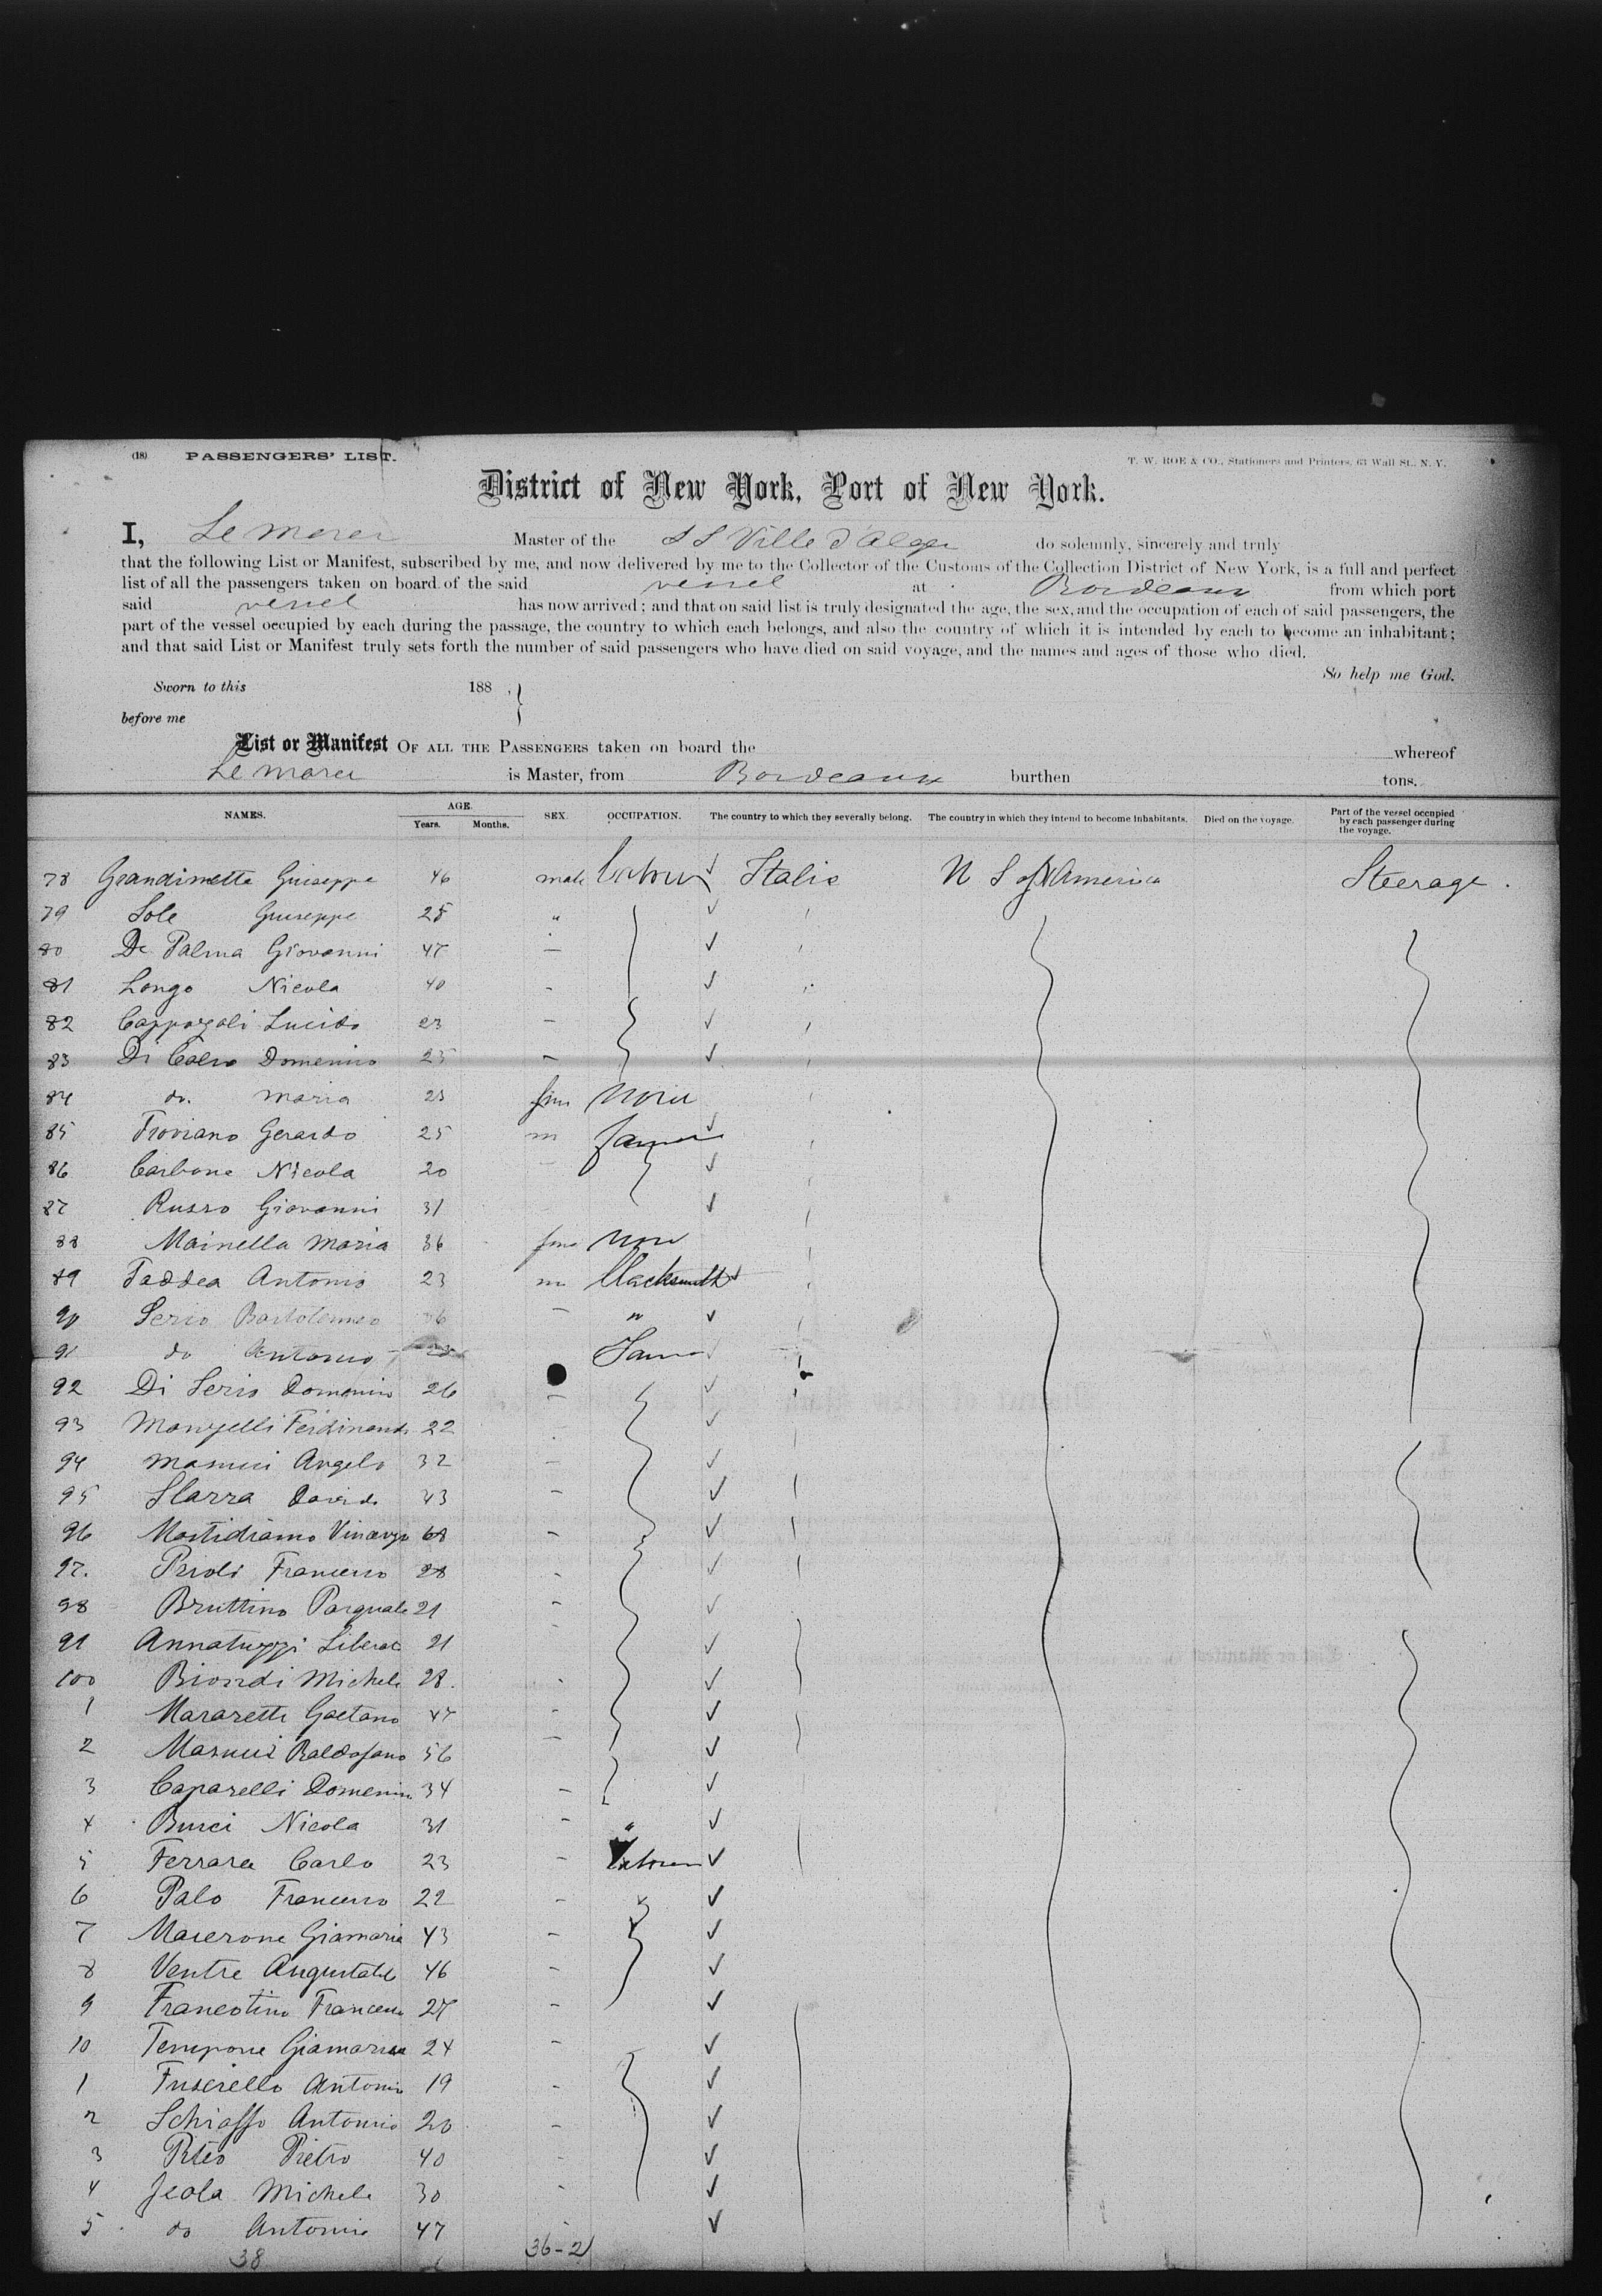 (18) PASSENGERS' LIST.
T. W. ROE & CO., Stationers and Printers, 63 Wall St., N. Y.
District of New York, Port of New York.
I, Master of the S S Ville d'Alger do solemnly, sincerely and truly
that the following List or Manifest, subscribed by me, and now delivered by me to the Collector of the Customs of the Collection District of New York, is a full and perfect
list of all the passengers taken on board of the said vessel at Bordeaux from which port
said vessel has now arrived; and that on said list is truly designated the age, the sex, and the occupation of each of said passengers, the
part of the vessel occupied by each during the passage, the country to which each belongs, and also the country of which it is intended by each to become an inhabitant;
and that said List or Manifest truly sets forth the number of said passengers who have died on said voyage, and the names and ages of those who died.
So help me God.
Sworn to this 188
before me
List or Manifest OF ALL THE PASSENGERS taken on board the whereof
is Master, from Bordeaux burthen tons.
NAMES. AGE. Years. Months. SEX. OCCUPATION. The country to which they severally belong. The country in which they intend to become inhabitants. Died on the voyage. Part of the vessel occupied by each passenger during the voyage.
78 Grandinette Giuseppe 46 male Italie U S of America Steerage.
79 Sole Giuseppe 28 "
80 De Palma Giovanni 47
81 Longo Nicola 40
82 Lucido 23
83 Domenico 25
84 do. Maria 23 fem
85 Troviano Gerardo 25 m farmer
86 Carbone Nicola 20
87 Russo Giovanni 31
88 Mainella Maria 36 fem
89 Taddea Antonio 23 m blacksmith
90 Serio Bartolomeo "
91 do Antonio
92 Di Serio Domenico 26
93 Manzelli Ferdinando 22
94 Masucci Angelo 32
95 Davide 43
96 68
97. Prioli Francesco 28
98 Bruttino Pasquale 21
91 Annatuzzi Liberat 21
100 Biondi Michele 28.
1 Gaetano 47
2 Masucci 56
3 Caparelli Domenico 34
4 Bucci Nicola 31 "
5 Ferrara Carlo 23
6 Palo Francesco 22
7 Macerone Giamaria 43
8 Ventre 46
9 Francotino Francesco 27
10 Tempone Giamaria 24
1 Fuscirello Antonio 19
2 Schiaffo Antonio 20
3 Pietro 40
4 Jeola Michele 30
5 do Antonio 47
38 36-2